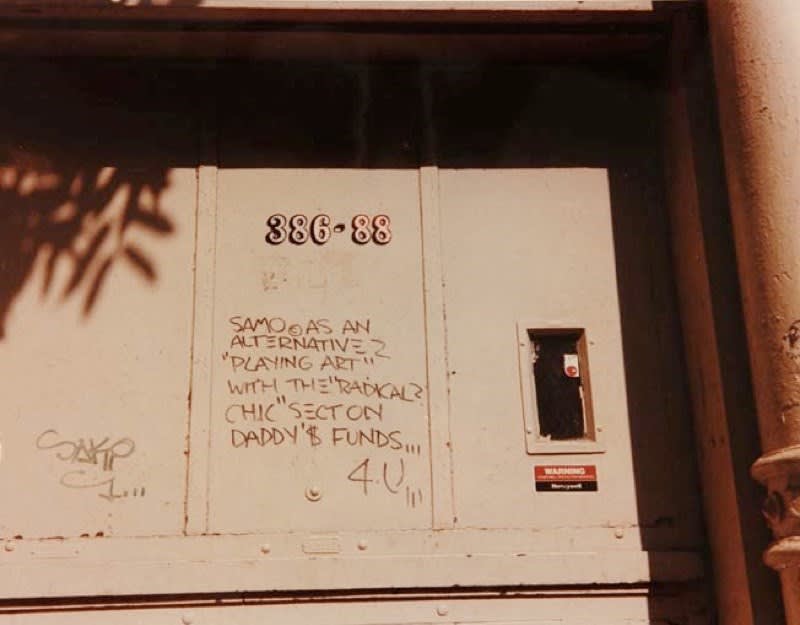 386-88
SAMO© AS AN
ALTERNATIVE 2
"PLAYING ART"
WITH THE "RADICAL?
CHIC" SECT ON
DADDY'$ FUNDS...
4.U...
WARNING
Honeywell